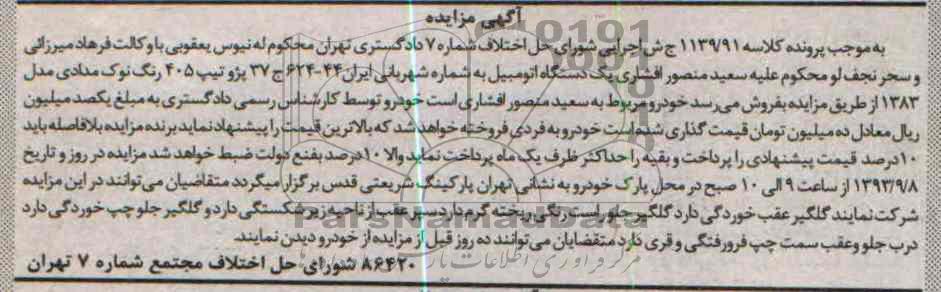 آگهی مزایده
به موجب پرونده کلاسه ۱۱۳۹/۹۱ ج ش اجرایی شورای حل اختلاف شماره ۷ دادگستری تهران محکوم له نیوس یعقوبی با وکالت فرهاد میرزائی
و سحر نجف لو محکوم علیه سعید منصور افشاری یک دستگاه اتومبیل به شماره شهربانی ایران ۴۴-۶۲۴ ج ۳۷ پژو تیپ ۴۰۵ رنگ نوک مدادی مدل
۱۳۸۳ از طریق مزایده بفروش می‌رسد خودرو مربوط به سعید منصور افشاری است خودرو توسط کارشناس رسمی دادگستری به مبلغ یکصد میلیون
ریال معادل ده میلیون تومان قیمت گذاری شده است خودرو به فردی فروخته خواهد شد که بالاترین قیمت را پیشنهاد نماید برنده مزایده بلافاصله باید
۱۰ درصد قیمت پیشنهادی را پرداخت و بقیه را حداکثر ظرف یک ماه پرداخت نماید والا ۱۰ درصد بفنع دولت ضبط خواهد شد مزایده در روز و تاریخ
۱۳۹۳/۹/۸ از ساعت ۹ الی ۱۰ صبح در محل پارک خودرو به نشانی تهران پارکینگ شریعتی قدس برگزار میگردد متقاضیان می‌توانند در این مزایده
شرکت نمایند گلگیر عقب خوردگی دارد گلگیر جلو راست رنگی ریخته گرم دارد سپر عقب از ناحیه زیر شکستگی دارد و گلگیر جلو چپ خوردگی دارد
درب جلو وعقب سمت چپ فرورفتگی و قری دارد متقضایان می‌توانند ده روز قبل از مزایده از خودرو دیدن نمایند.
۸۶۴۲۰ شورای حل اختلاف مجتمع شماره ۷ تهران
ParsNamadData